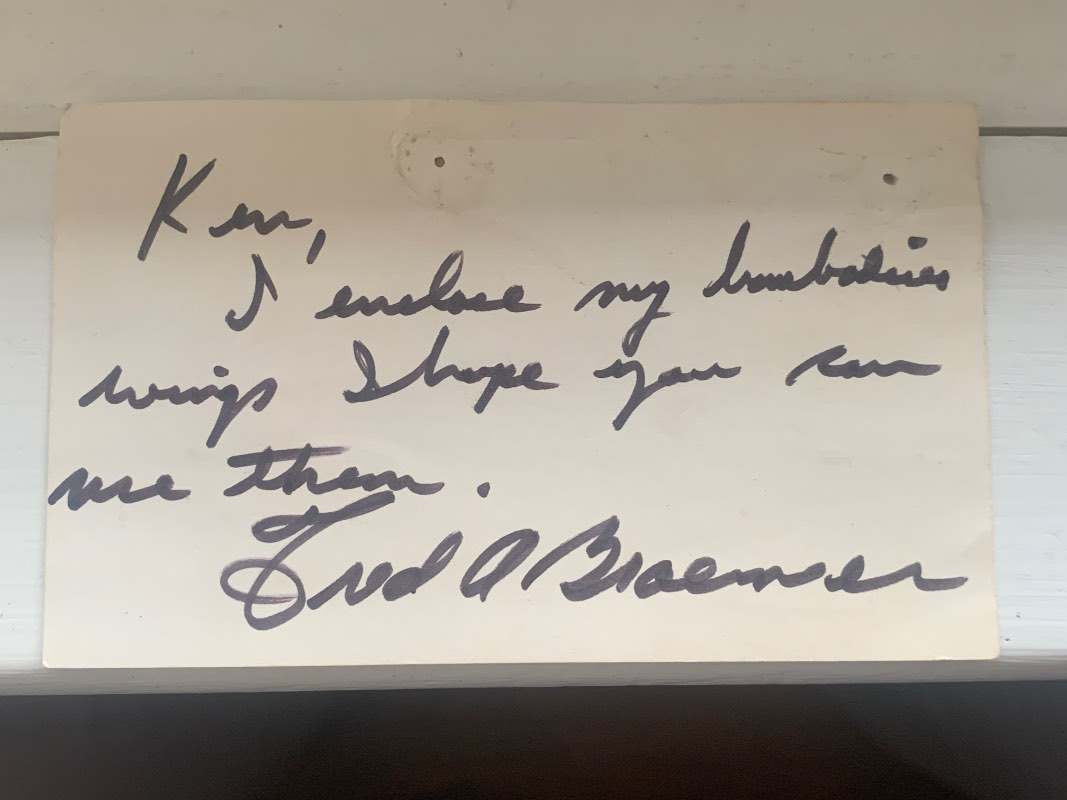 Ken,
I enclose my bombadiers
wings I hope you can
use them.
Fred A Braemer